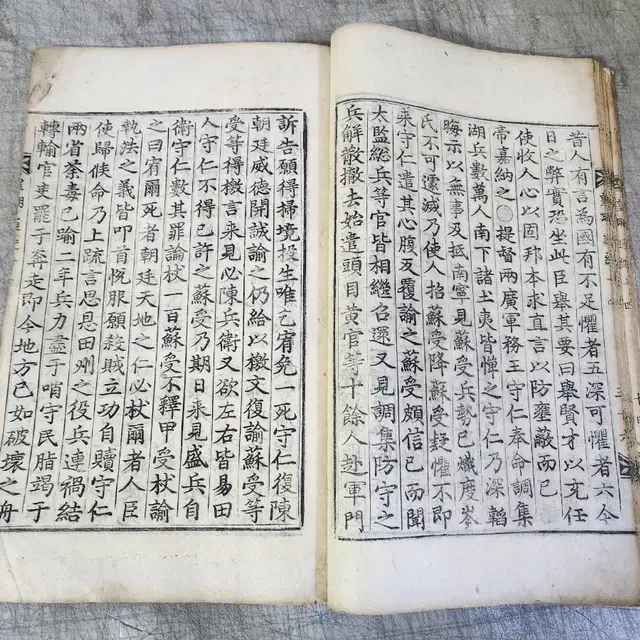 昔人有言為國有不足懼者五深可懼者六今
日之弊實恐坐此臣舉其要曰舉賢才以充任
使收人心以固邦本求直言以防壅蔽而已
帝嘉納之○提督兩廣軍務王守仁奉命調集
湖兵數萬人南下諸土夷皆憚之守仁乃深韜
晦示以無事及抵南寧見蘇受兵勢已熾度岑
氏不可還滅乃使人招蘇受降蘇受疑懼不即
来守仁遣其心腹反覆諭之蘇受頗信已而聞
太監総兵等官皆相繼召還又見調集防守之
兵解散撤去始遣頭目黃官等十餘人赴軍門
訴告願得掃境投生唯乞宥免一死守仁復陳
朝廷威德開誠諭之仍給以檄文復諭蘇受等
受等得檄言来見必陳兵衛又欲左右皆易田
人守仁不得已許之蘇受乃期日来見盛兵自
衛守仁數其罪論杖一百蘇受不釋甲受杖諭
之曰宥爾死者朝廷天地之仁必杖爾者人臣
執法之義皆叩首悅服願殺賊立功自贖守仁
使歸俟命乃上疏言思恩田州之役兵連禍結
兩省荼毒已踰二年兵力盡于哨守民脂竭于
轉輸官吏罷于奔走即今地方已如破壞之舟